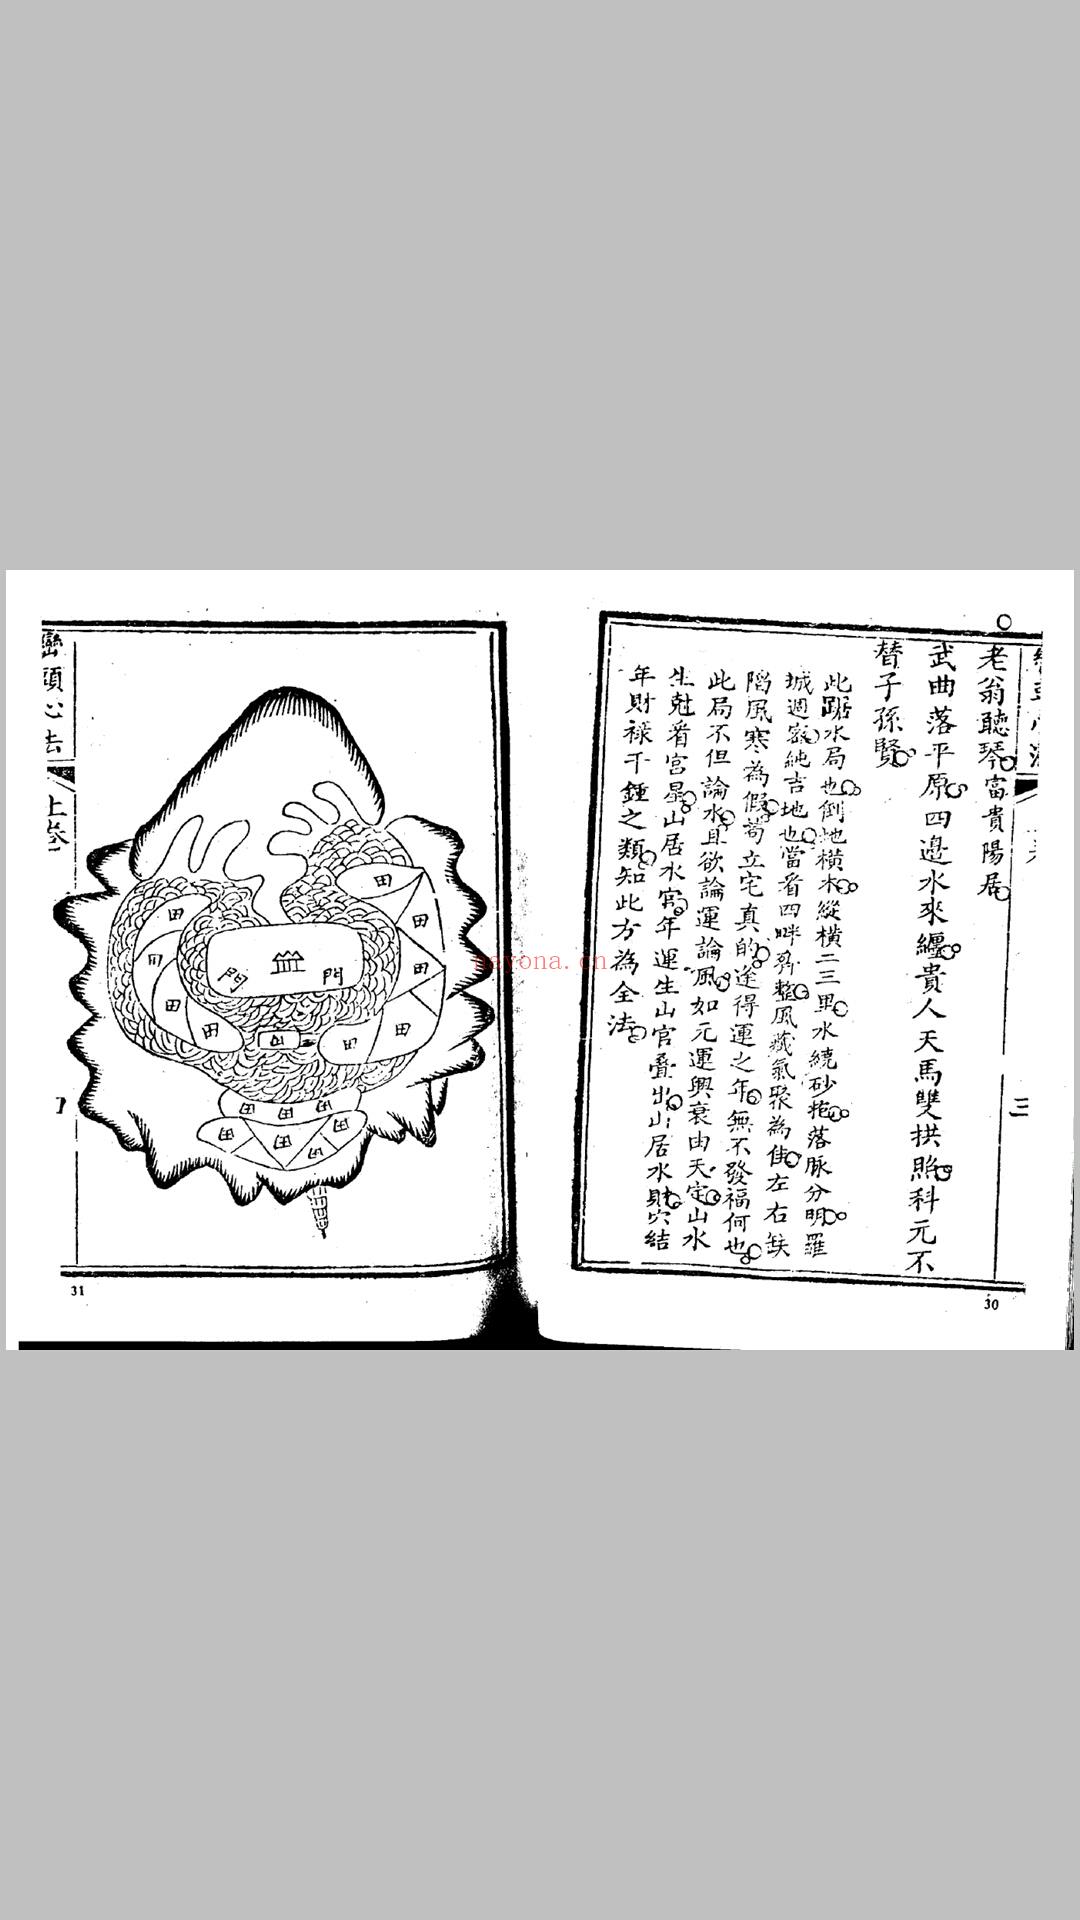 老翁聽琴富貴陽居
武曲落平原四邊水來纏貴人天馬雙拱照科元不
替子孫賢
此踞水局也倒地橫木縱橫二三里水繞砂抱落脉分明羅
城週密純吉地也當看四畔齊整風藏氣聚為佳左右缺
陷風寒為假苟立宅真的逢得運之年無不發福何也
此局不但論水且欲論運論風如元運興衰由天定山水
生尅看宮星山居水宮年運生山官疊出山居水財穴結
年財祿千鍾之類知此方為全法
三
30
巒頭心法
上卷
31
田
田
田
田
田
田
田
田
田
門
門
田
田
田
田
田
nayona.cn